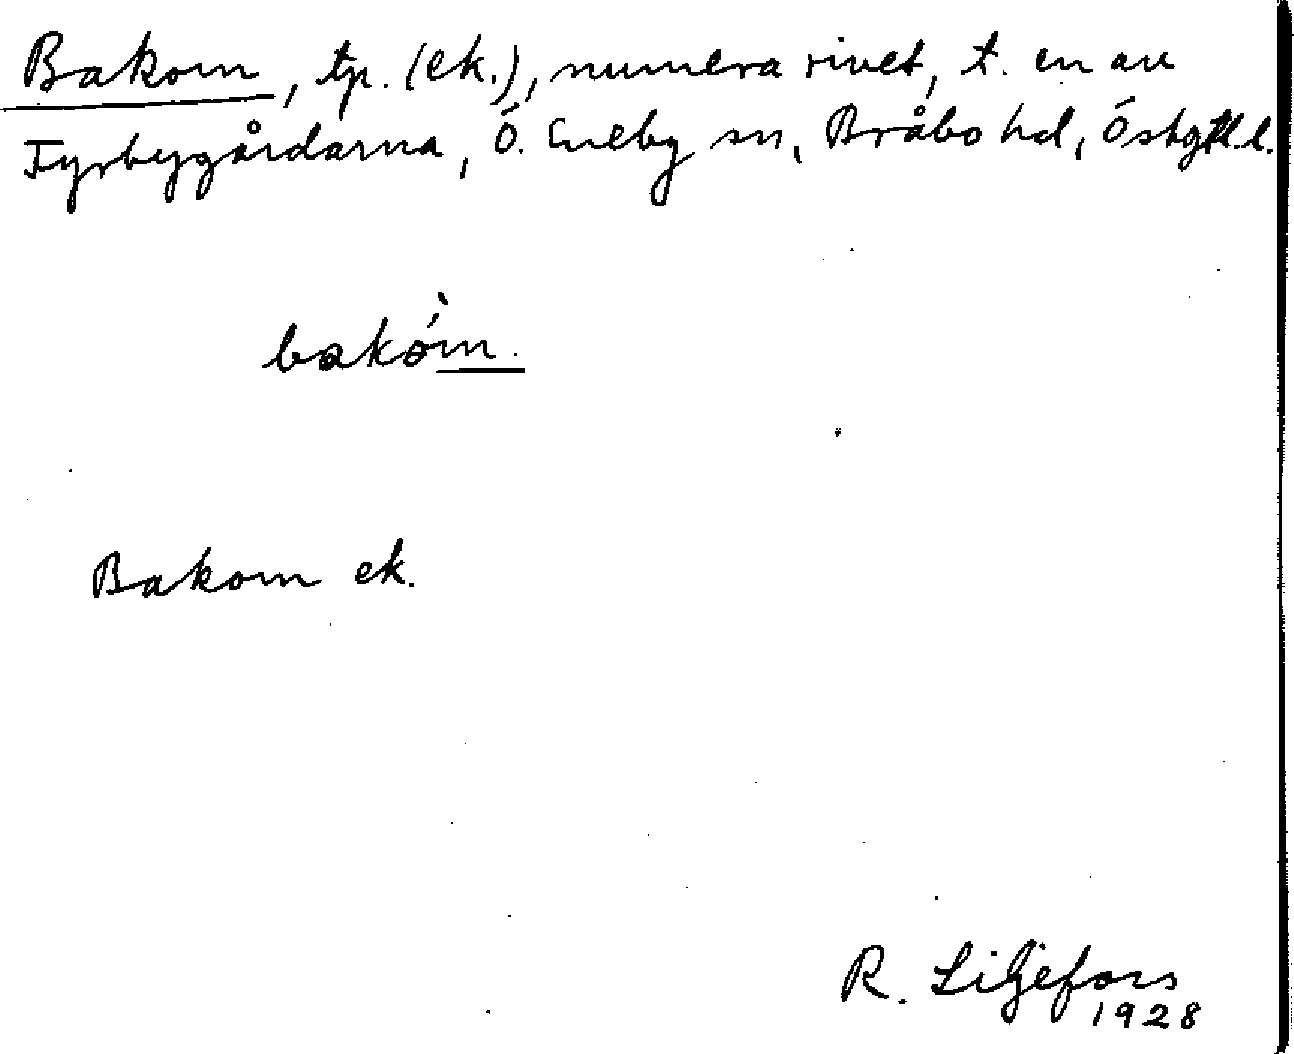 Bakom, tp. (ek.), numera rivet, t. en av
Fyrbygårdarna, Ö. Eneby sn, Bråbo hd, Östgtl. l.
bakòm.
Bakom ek.
R. Liljefors
1928